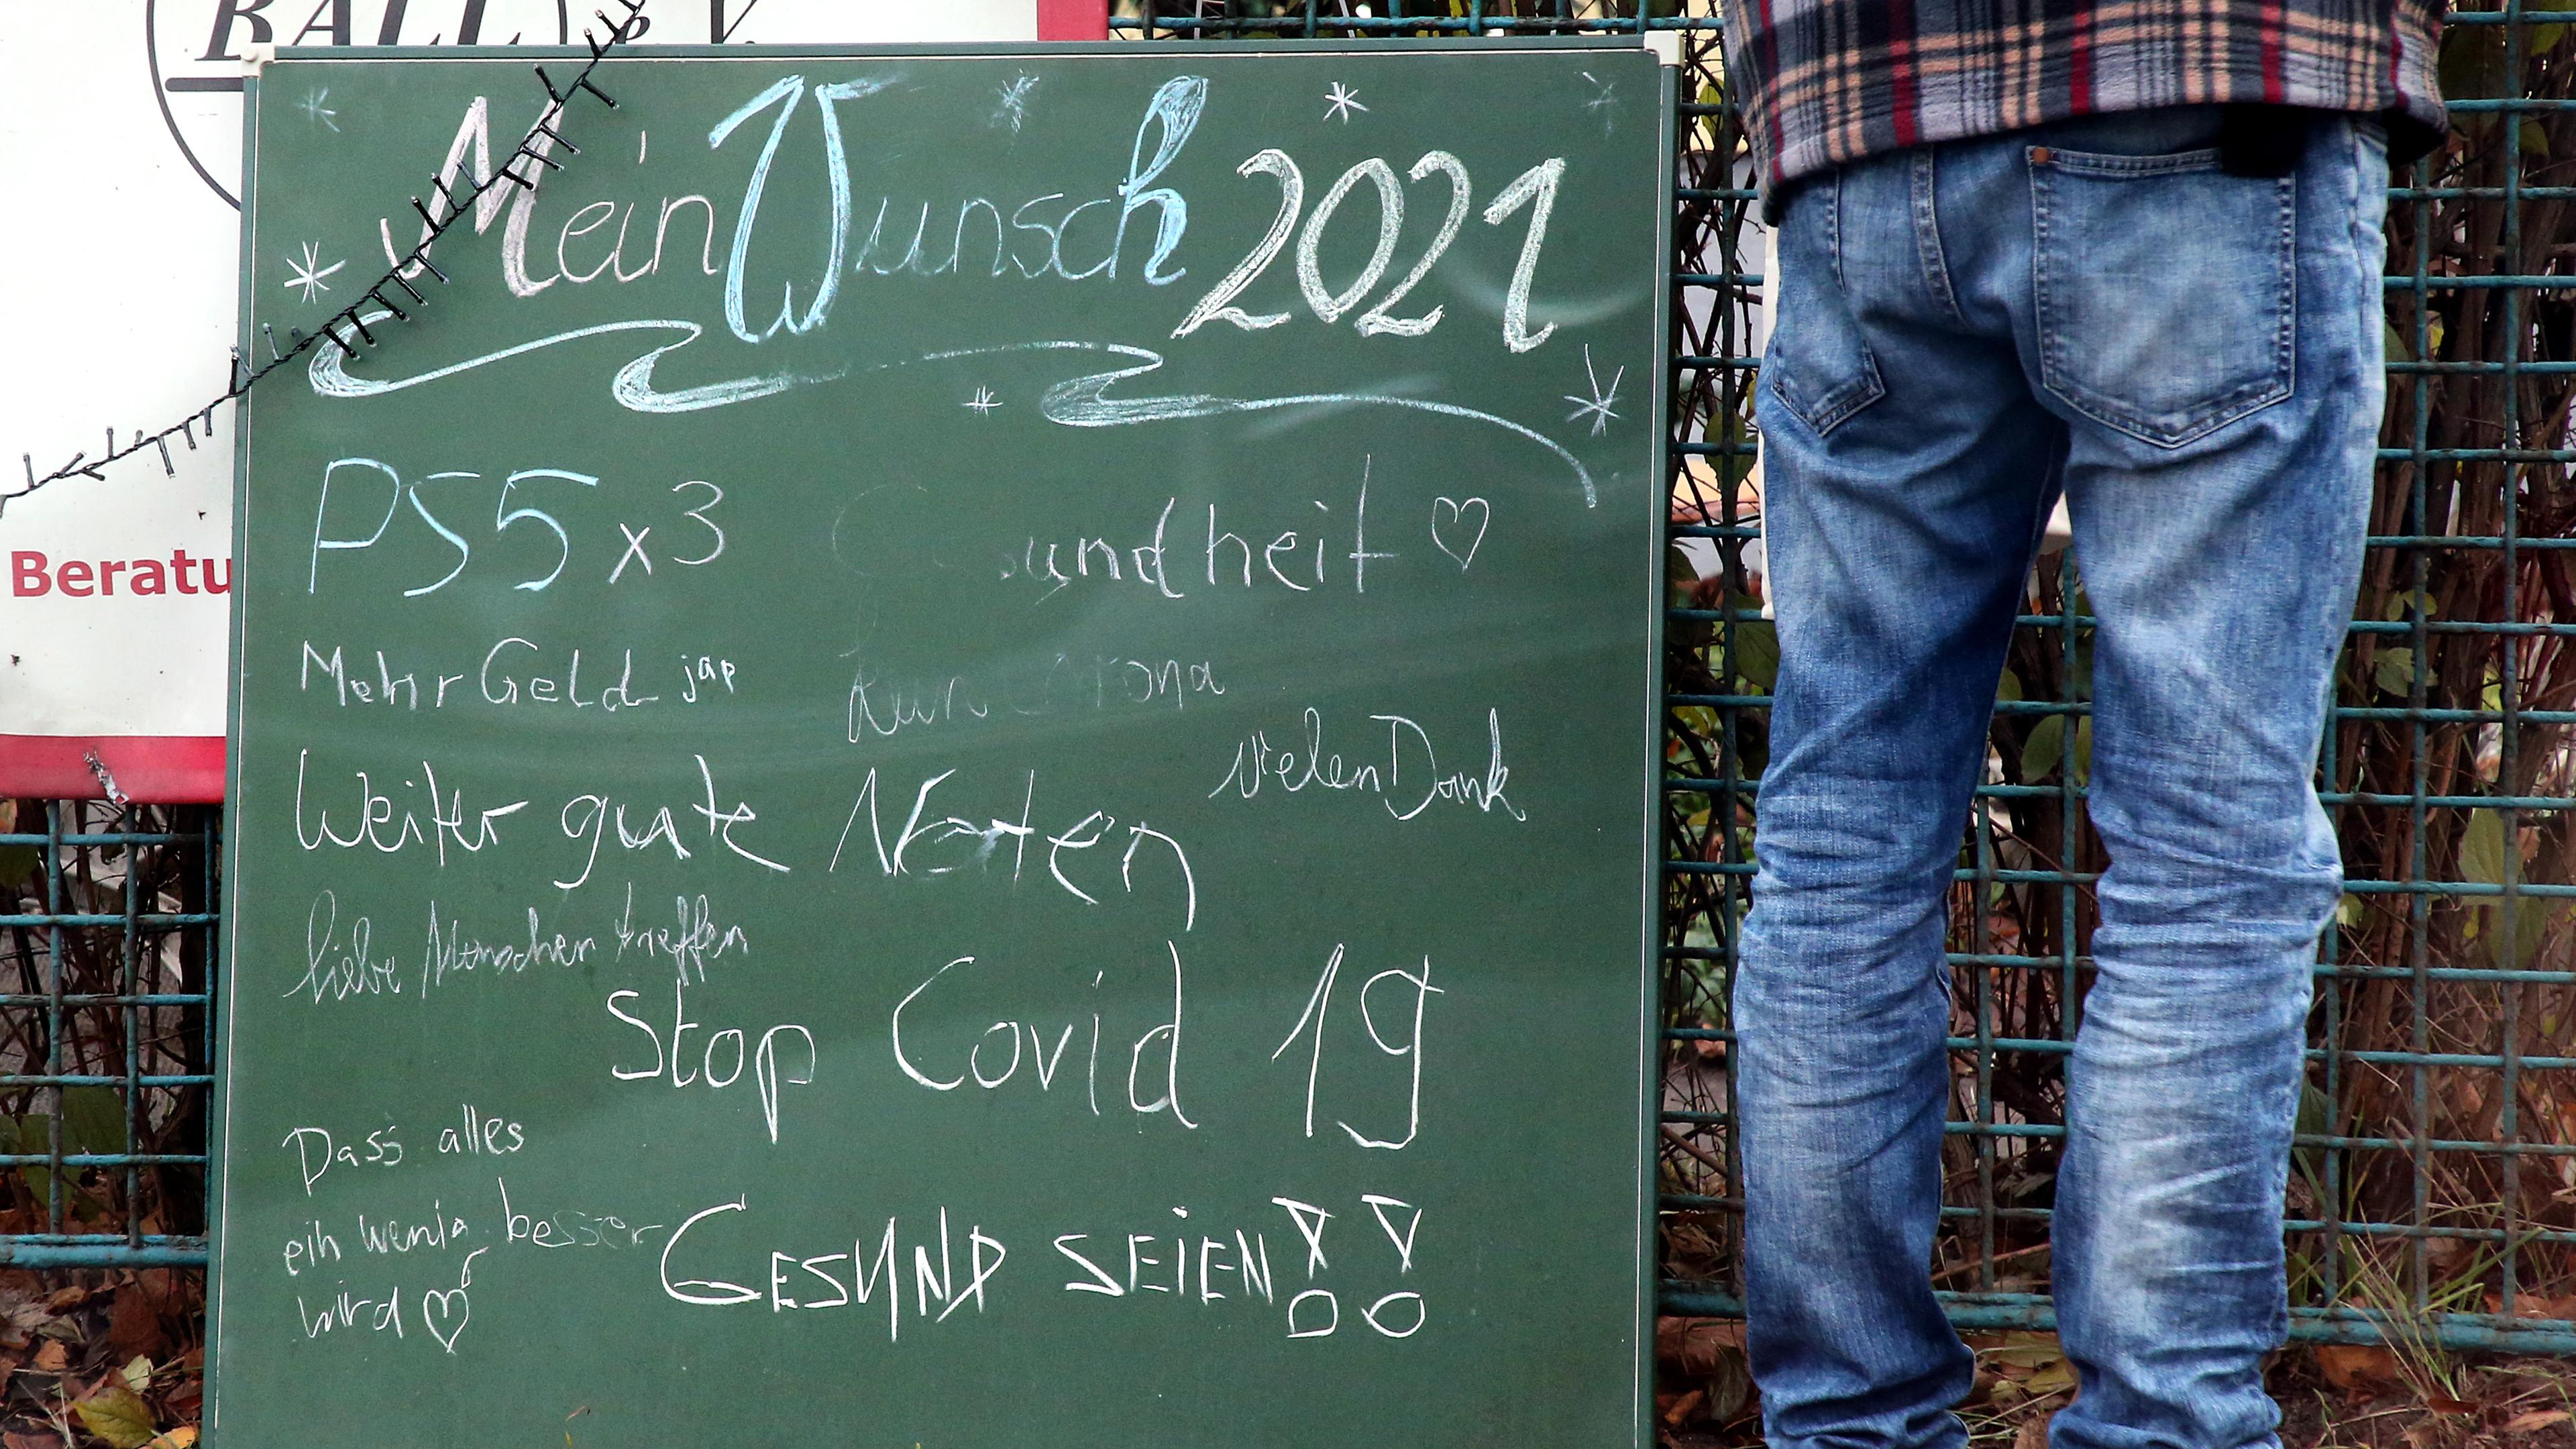 BALL e.V.
Beratu
Mein Wunsch 2021
PS5 x3
undheit
Mehr Geld jap
rona
Weiter gute Noten
vielen Dank
liebe Menschen treffen
Stop Covid 19
Dass alles
ein wenig besser
wird
GESUND SEIEN!!